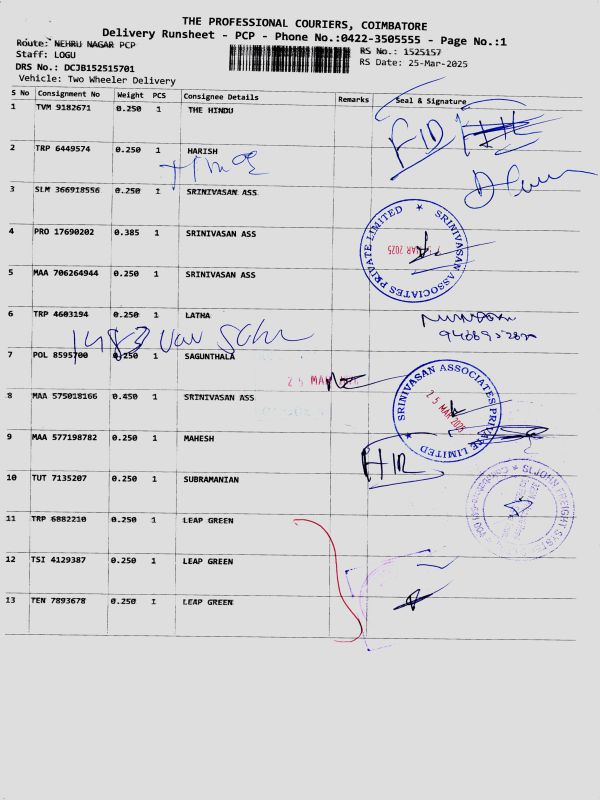 THE PROFESSIONAL COURIERS, COIMBATORE
Delivery Runsheet - PCP - Phone No.:0422-3505555 - Page No.:1
Route: NEHRU NAGAR PCP
RS No.: 1525157
Staff: LOGU
RS Date: 25-Mar-2025
DRS No.: DCJB152515701
Vehicle: Two Wheeler Delivery
S No Consignment No Weight PCS Consignee Details Remarks Seal & Signature
1 TVM 9182671 0.250 1 THE HINDU
2 TRP 6449574 0.250 1 HARISH
3 SLM 366918556 0.250 1 SRINIVASAN ASS
4 PRO 17690202 0.385 1 SRINIVASAN ASS
SRINIVASAN ASSOCIATES PRIVATE LIMITED
MAR 2025
5 MAA 706264944 0.250 1 SRINIVASAN ASS
6 TRP 4603194 0.250 1 LATHA
7 POL 8595700 0.250 1 SAGUNTHALA
25 MAR
8 MAA 575018166 0.450 1 SRINIVASAN ASS
SRINIVASAN ASSOCIATES PRIVATE LIMITED
25 MAR 2025
9 MAA 577198782 0.250 1 MAHESH
10 TUT 7135207 0.250 1 SUBRAMANIAN
11 TRP 6882210 0.250 1 LEAP GREEN
ST.JOHN FREIGHT SYSTEMS
12 TSI 4129387 0.250 1 LEAP GREEN
13 TEN 7893678 0.250 1 LEAP GREEN